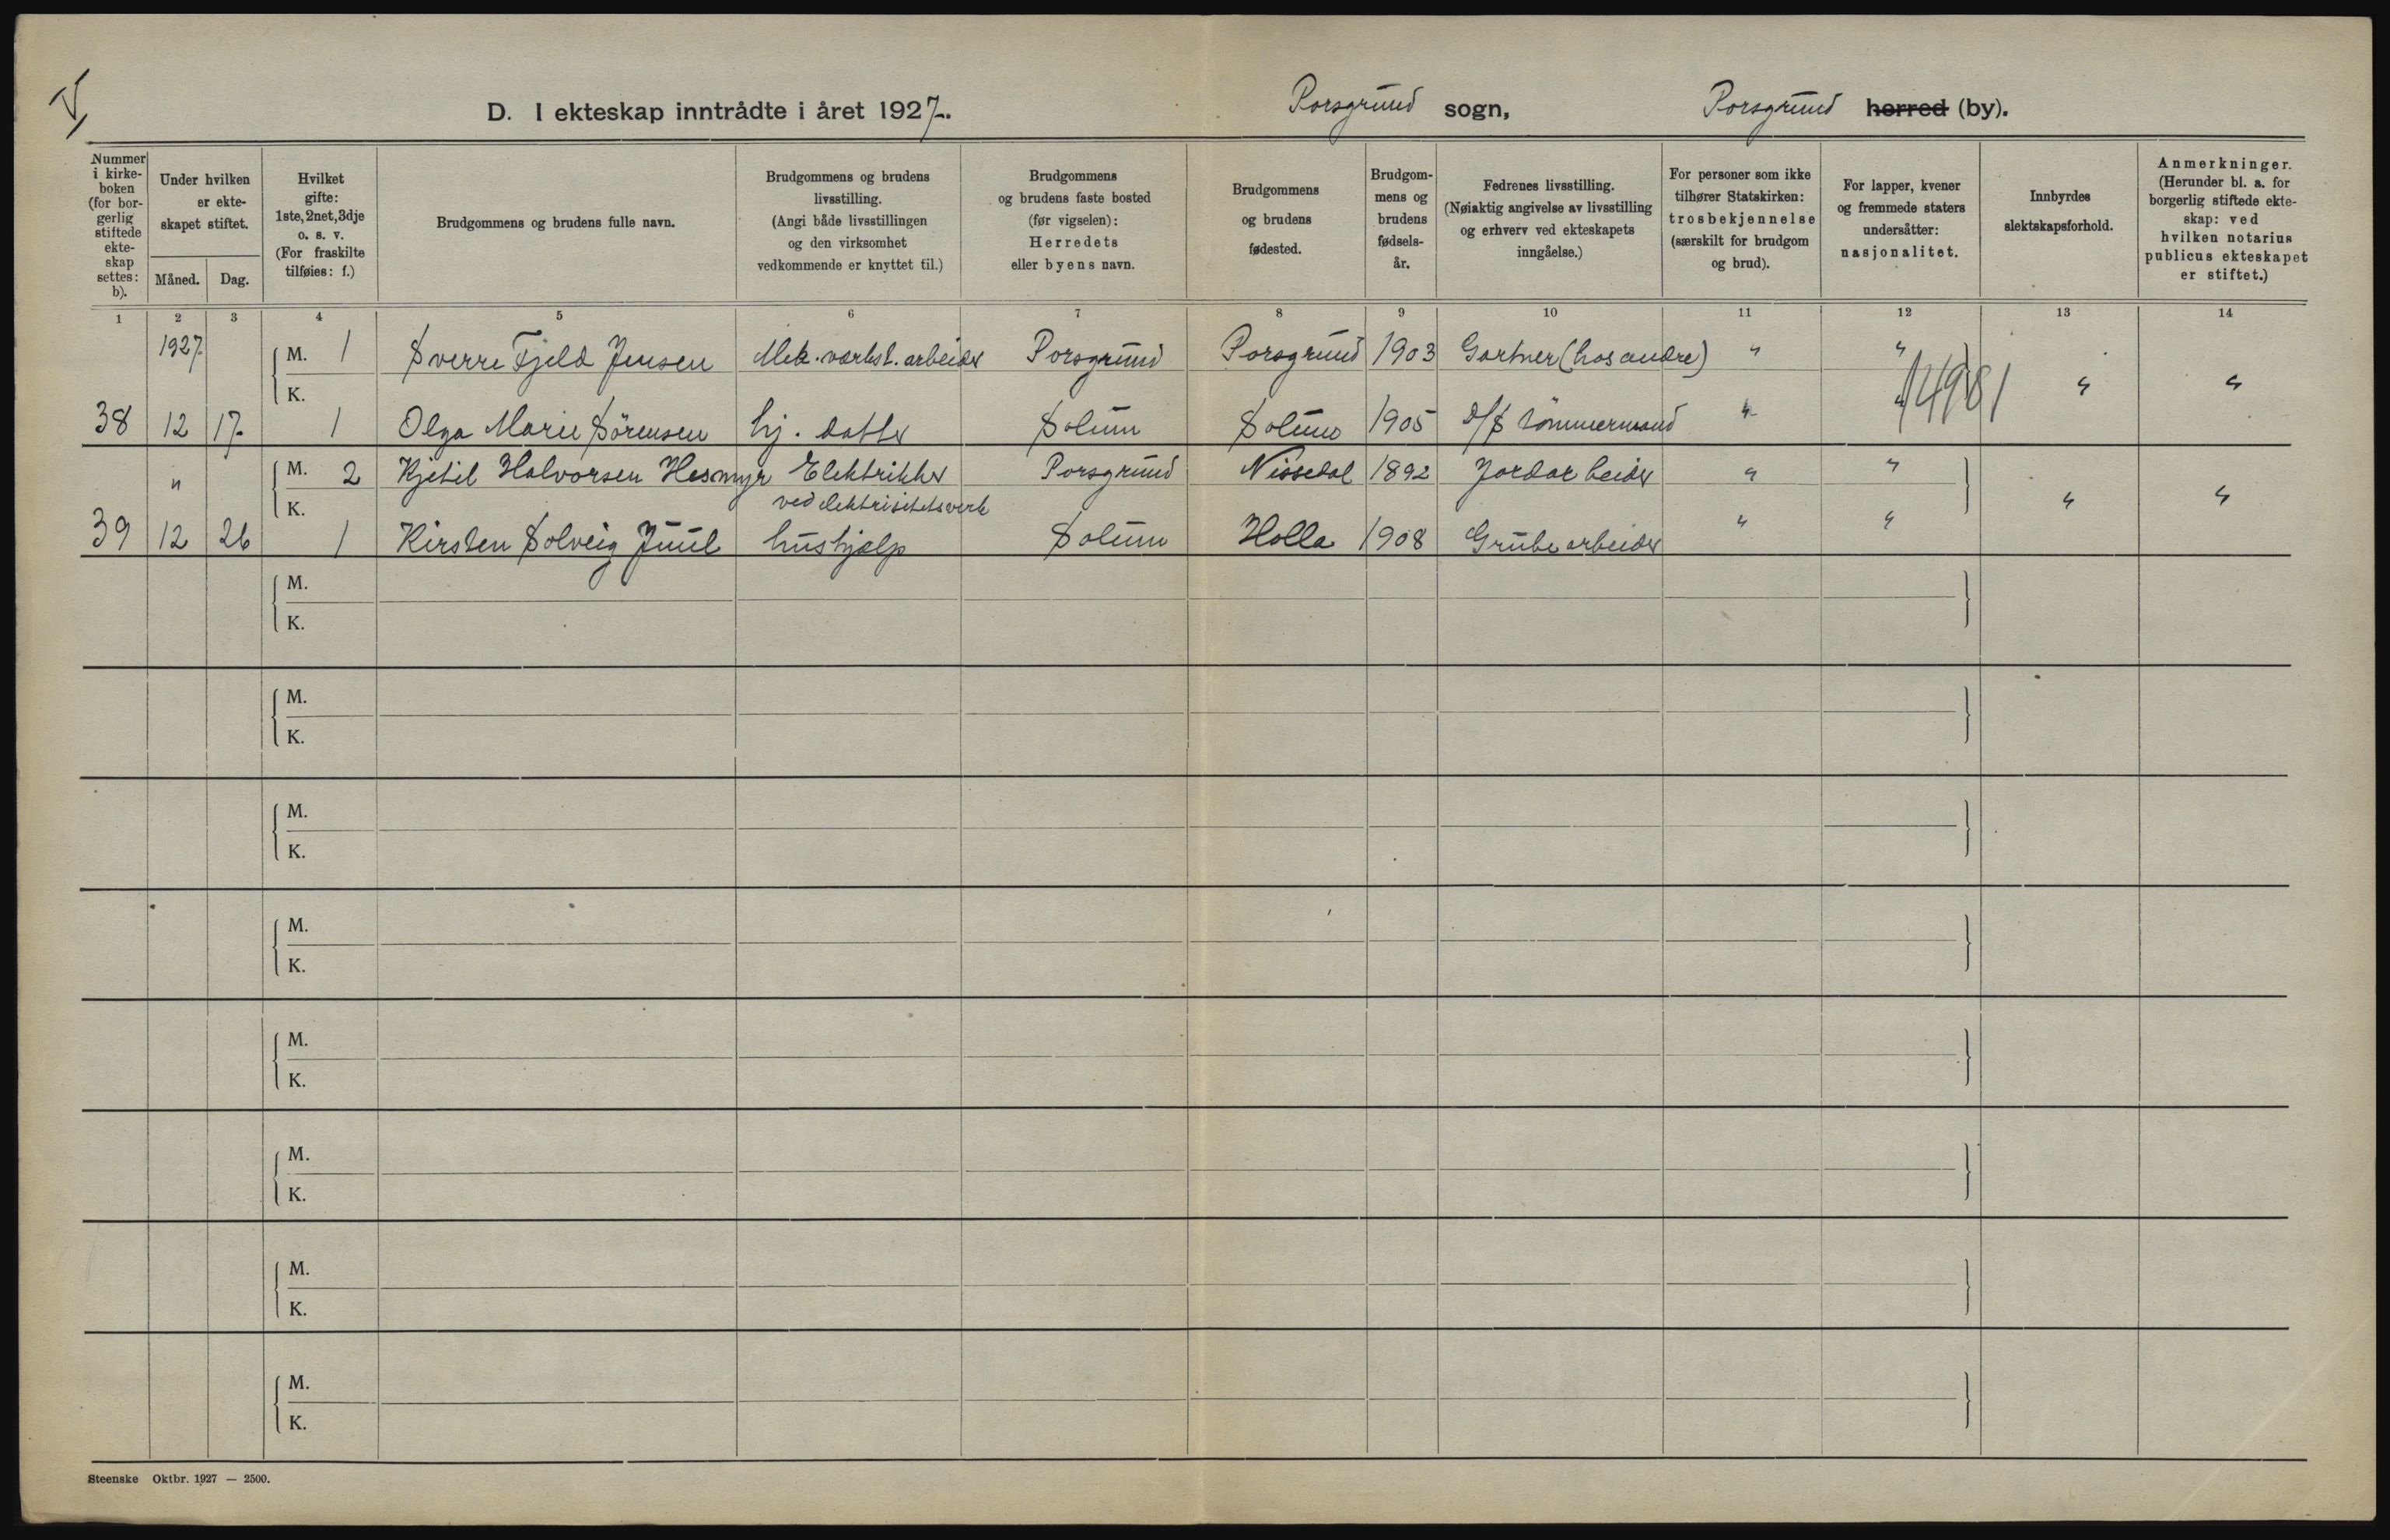 D. I ekteskap inntrådte i året 1927. Porsgrund sogn, Porsgrund herred (by).
Nummer i kirke-boken (for bor-gerlig stiftede ekte-skap settes: b).
Under hvilken er ekte-skapet stiftet.
Måned. Dag.
Hvilket gifte: 1ste, 2net, 3dje o. s. v. (For fraskilte tilføies: f.)
Brudgommens og brudens fulle navn.
Brudgommens og brudens livsstilling. (Angi både livsstillingen og den virksomhet vedkommende er knyttet til.)
Brudgommens og brudens faste bosted (før vigselen): Herredets eller byens navn.
Brudgommens og brudens fødested.
Brudgom-mens og brudens fødsels-år.
Fedrenes livsstilling. (Nøiaktig angivelse av livsstilling og erhverv ved ekteskapets inngåelse.)
For personer som ikke tilhører Statskirken: trosbekjennelse (særskilt for brudgom og brud).
For lapper, kvener og fremmede staters undersåtter: nasjonalitet.
Innbyrdes slektskapsforhold.
Anmerkninger. (Herunder bl. a. for borgerlig stiftede ekte-skap: ved hvilken notarius publicus ekteskapet er stiftet.)
1 2 3 4 5 6 7 8 9 10 11 12 13 14
1927 M. 1 Sverre Fjeld Jensen Mek. værkst. arbeider Porsgrund Porsgrund 1903 Gartner (hos andre) " "
K.
38 12 17 1 Olga Marie Sörensen hj. datter Solum Solum 1905 D/S tömmermand " " " "
" M. 2 Kjetil Halvorsen Hesmyr Elektriker Porsgrund Nissedal 1892 Jordarbeider " "
K. ved elektrisitetsverk " "
39 12 26 1 Kirsten Solveig Juul hushjælp Solum Holla 1908 Grubearbeider " "
M.
K.
M.
K.
M.
K.
M.
K.
M.
K.
M.
K.
M.
K.
M.
K.
Steenske Oktbr. 1927 — 2500.